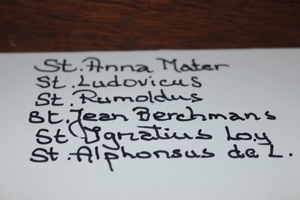 St. Anna Mater
St. Ludovicus
St. Rumoldus
Bt. Jean Berchmans
St Ignatius Loy
St. Alphonsus de L.